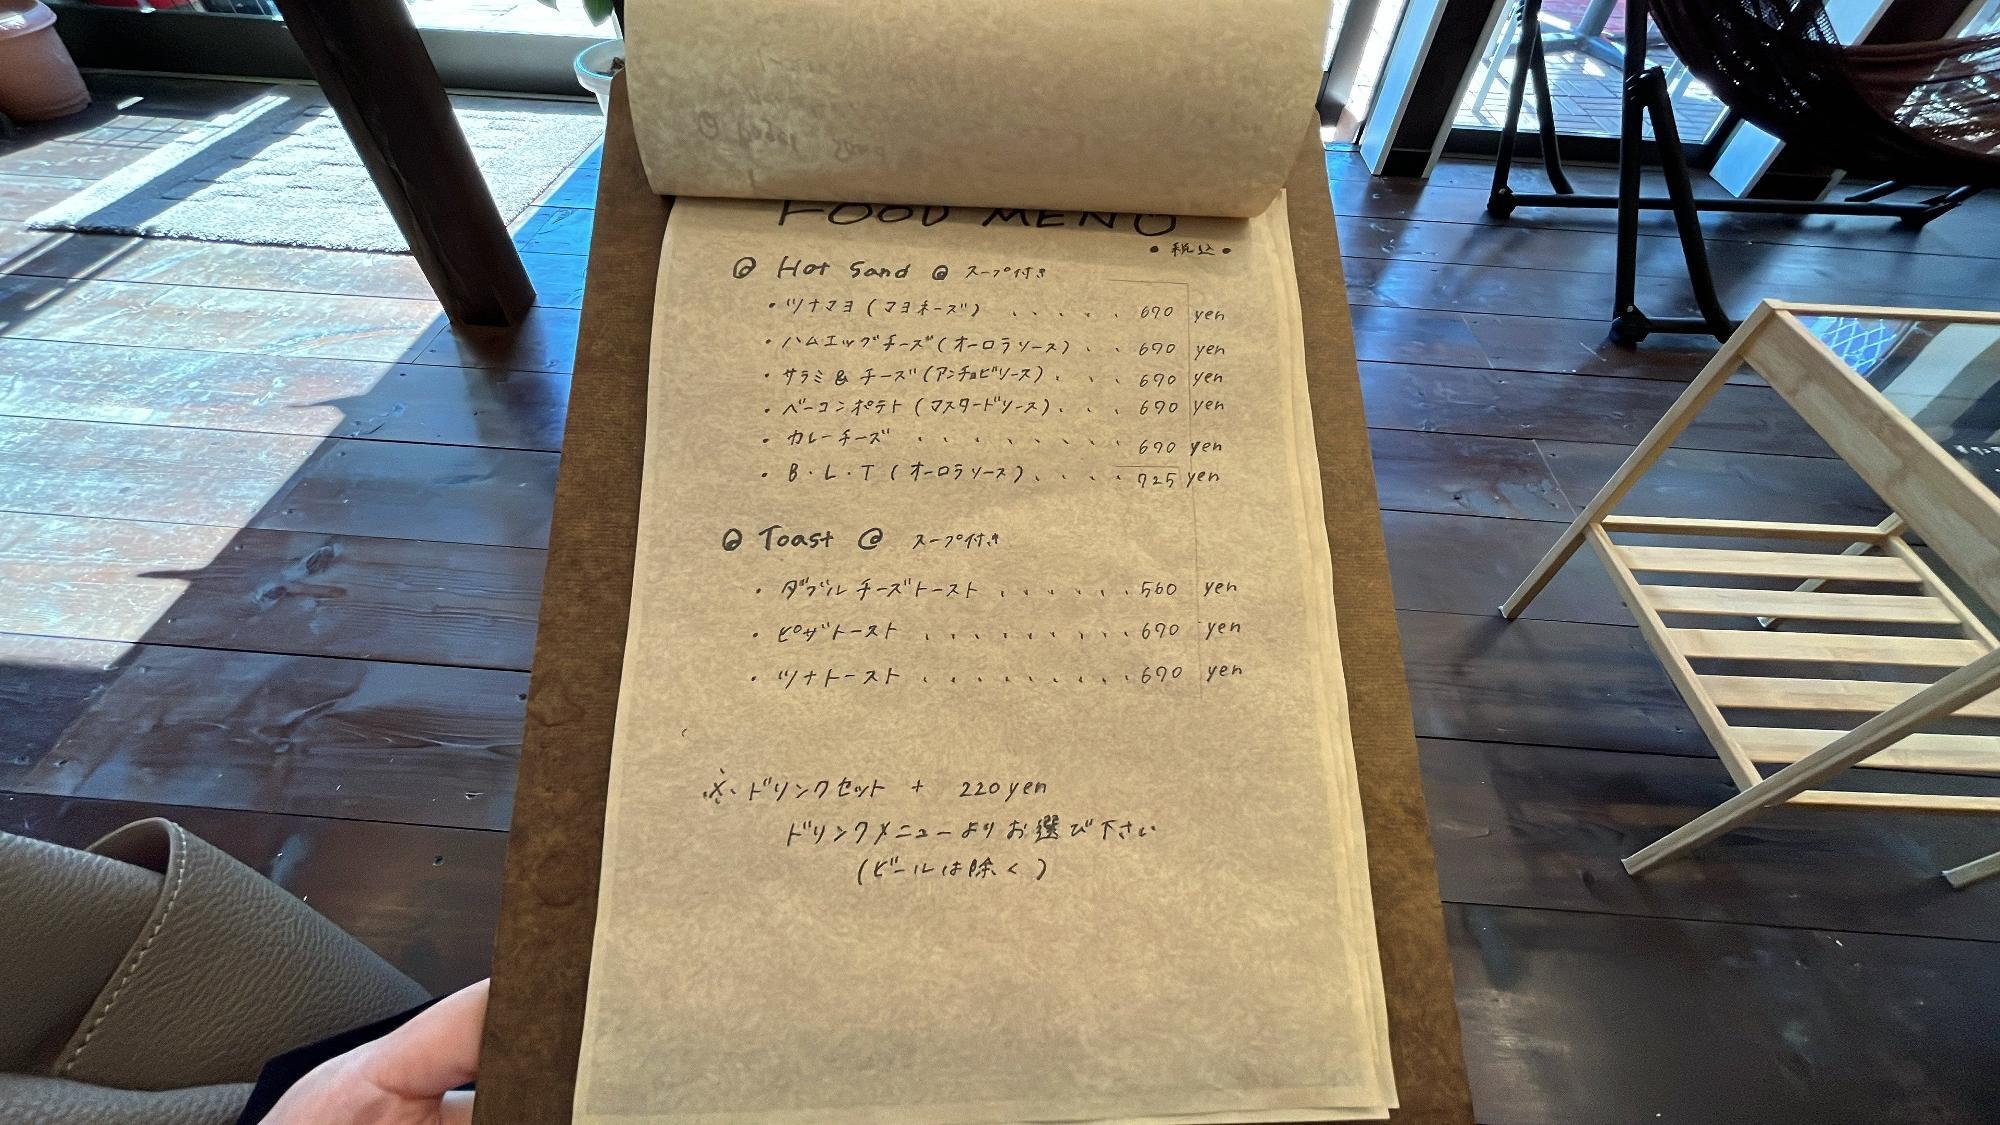 FOOD MENU
• 税込 •
Hot Sand スープ付き
• ツナマヨ (マヨネーズ) . . . . . 670 yen
• ハムエッグチーズ (オーロラソース) . . 670 yen
• サラミ & チーズ (アンチョビソース) . . . 670 yen
• ベーコンポテト (マスタードソース) . . . 670 yen
• カレーチーズ . . . . . . . . 670 yen
• B・L・T (オーロラソース) . . . . 725 yen
Toast スープ付き
• ダブルチーズトースト . . . . . . 560 yen
• ピザトースト . . . . . . . . . 670 yen
• ツナトースト . . . . . . . . . 670 yen
※ ドリンクセット + 220yen
ドリンクメニューよりお選び下さい
(ビールは除く)